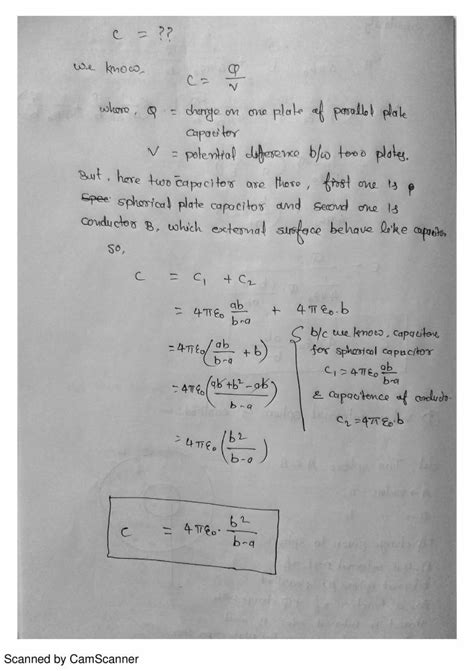 C = ??
We know,
C = Q/V
where, Q = charge on one plate of parallel plate
capacitor
V = potential difference b/w two plates.
But, here two capacitor are there, first one is
spherical plate capacitor and second one is
conductor B, which external surface behave like capacitor
so,
C = C₁ + C₂
= 4πε₀ ab/(b-a) + 4πε₀.b
= 4πε₀(ab/(b-a) + b)
= 4πε₀((ab+b²-ab)/(b-a))
= 4πε₀(b²/(b-a))
b/c we know, capacitance
for spherical capacitor
C₁ = 4πε₀ ab/(b-a)
& capacitence of conducto.
C₂ = 4πε₀.b
C = 4πε₀. b²/(b-a)
Scanned by CamScanner